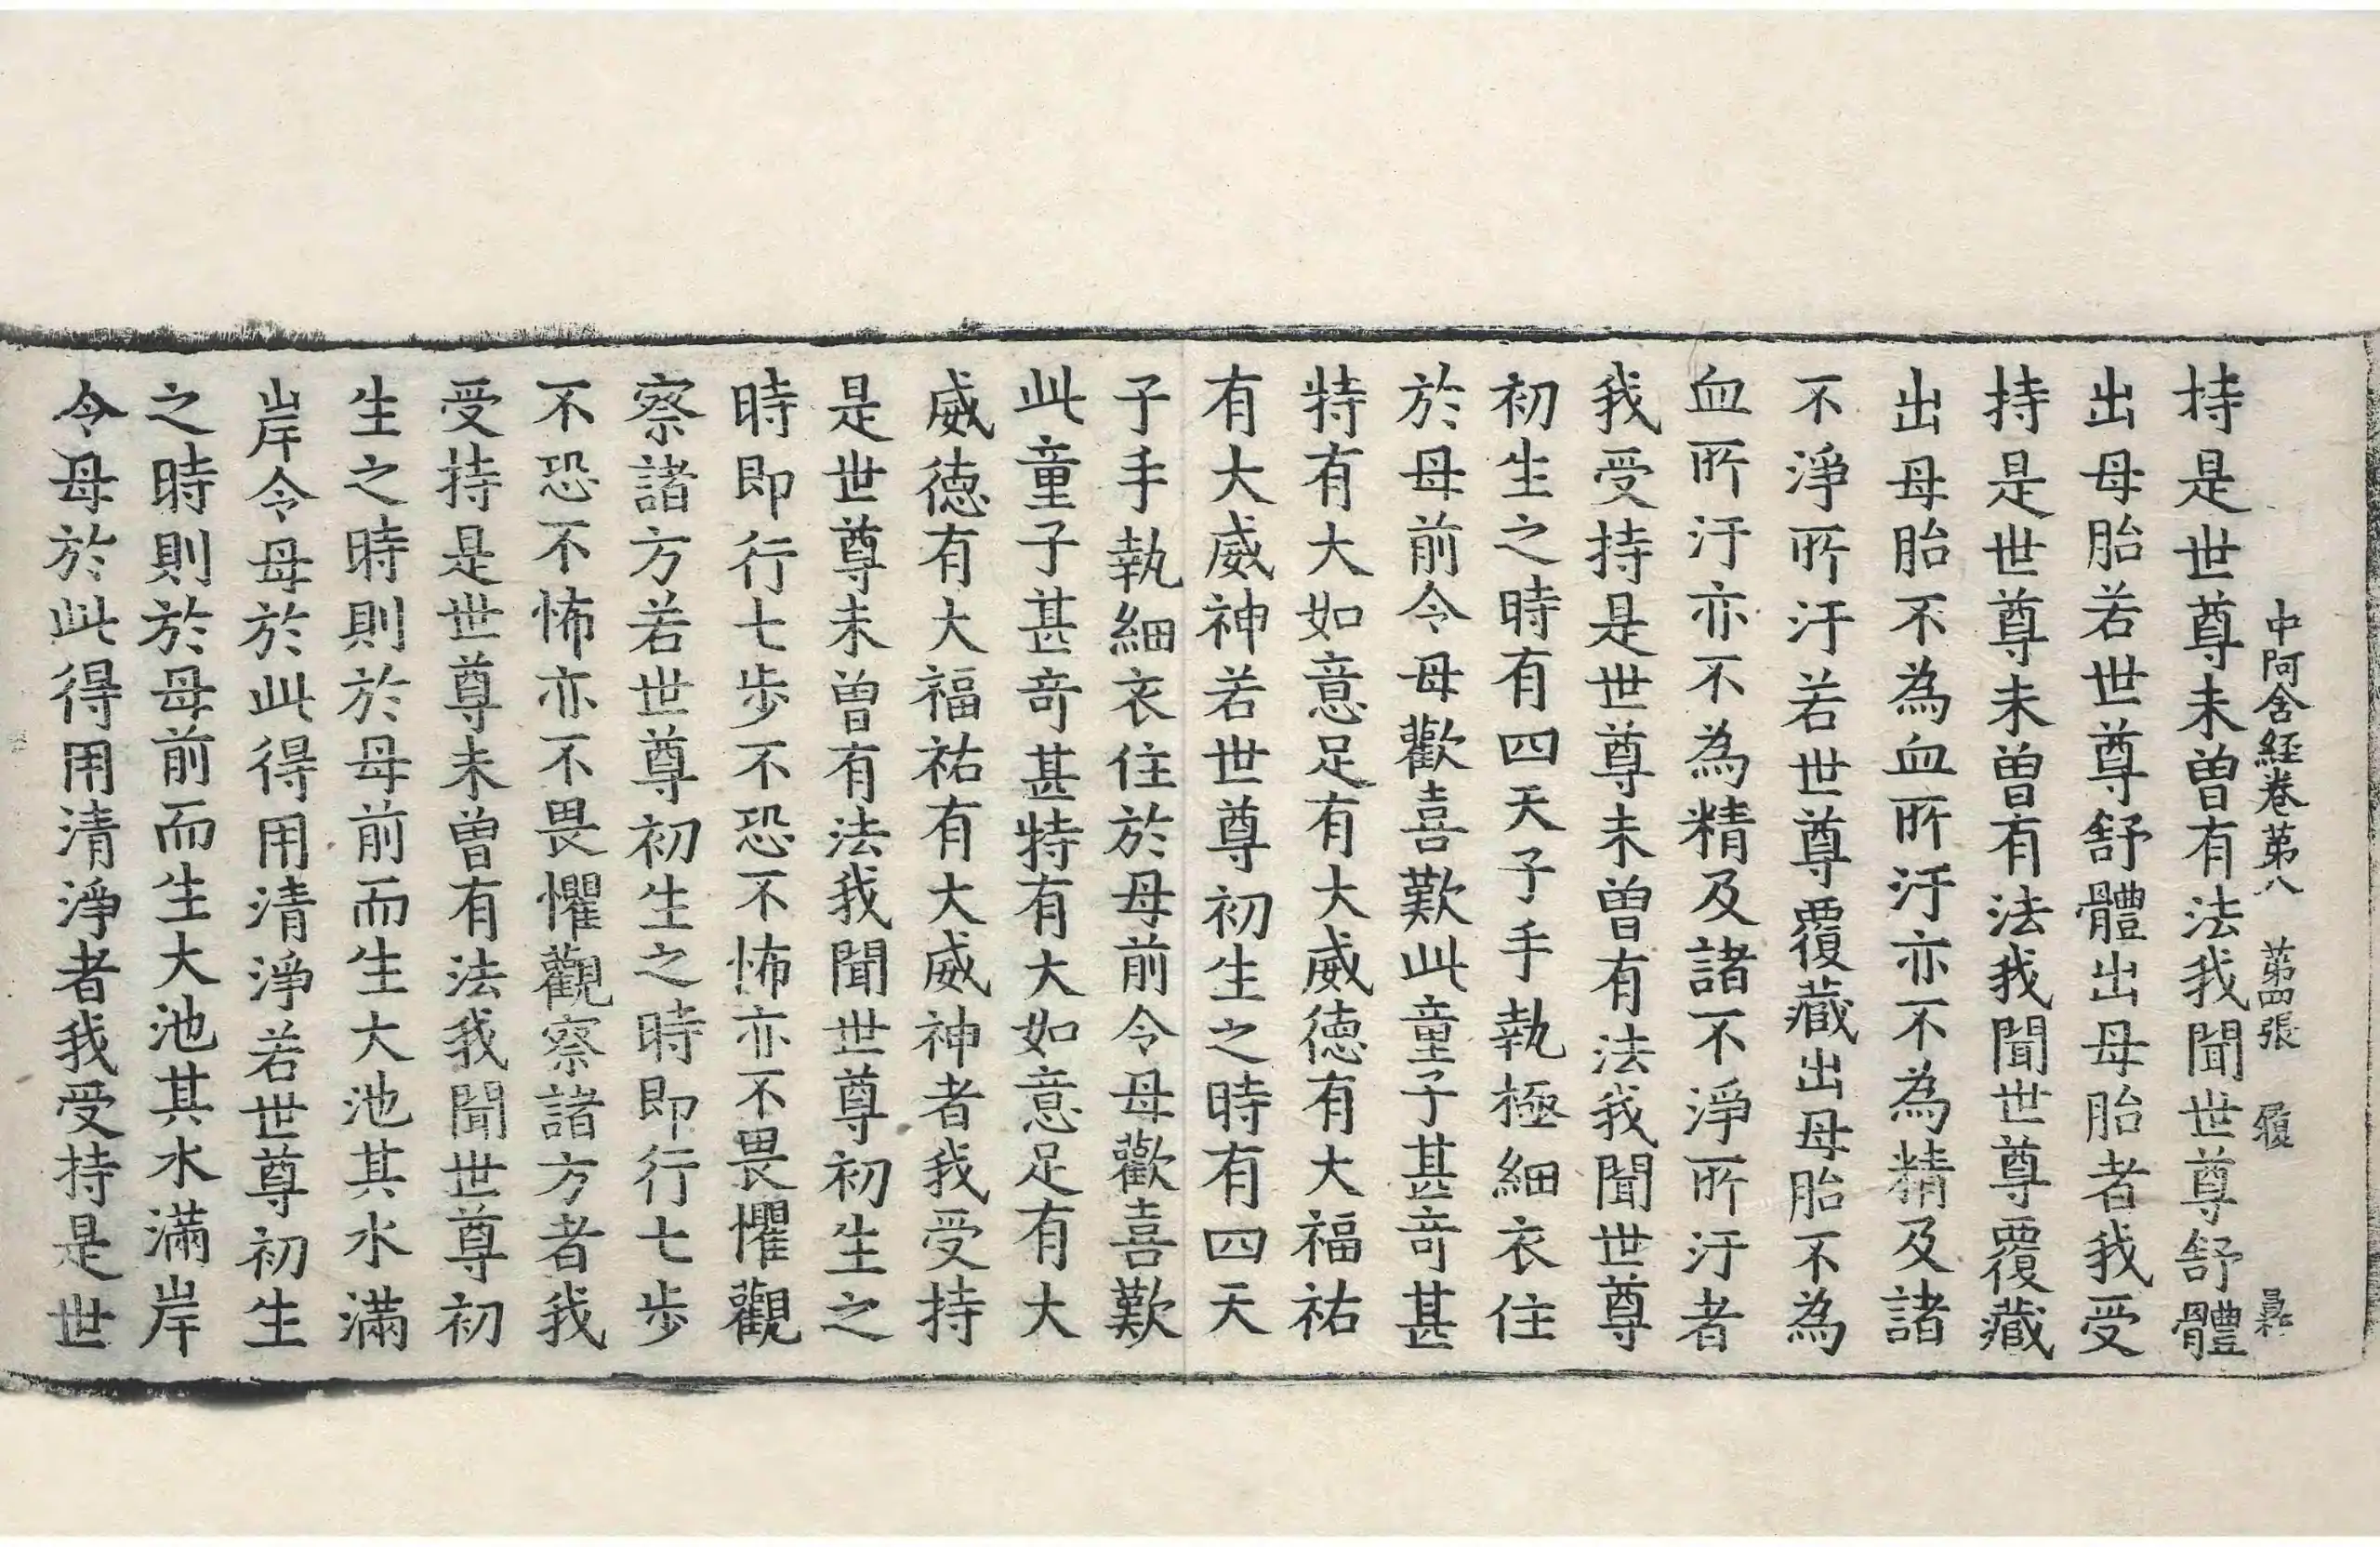 中阿含経卷苐八　苐四張　履
持是世尊未曽有法我聞世尊舒體
出母胎若世尊舒體出母胎者我受
持是世尊未曽有法我聞世尊覆藏
出母胎不為血所汙亦不為精及諸
不淨所汙若世尊覆藏出母胎不為
血所汙亦不為精及諸不淨所汙者
我受持是世尊未曽有法我聞世尊
初生之時有四天子手執極細衣住
於母前令母歡喜歎此童子甚竒甚
特有大如意足有大威徳有大福祐
有大威神若世尊初生之時有四天
子手執細衣住於母前令母歡喜歎
此童子甚竒甚特有大如意足有大
威徳有大福祐有大威神者我受持
是世尊未曽有法我聞世尊初生之
時即行七歩不恐不怖亦不畏懼觀
察諸方若世尊初生之時即行七歩
不恐不怖亦不畏懼觀察諸方者我
受持是世尊未曽有法我聞世尊初
生之時則於母前而生大池其水滿
岸令母於此得用清淨若世尊初生
之時則於母前而生大池其水滿岸
令母於此得用清淨者我受持是世